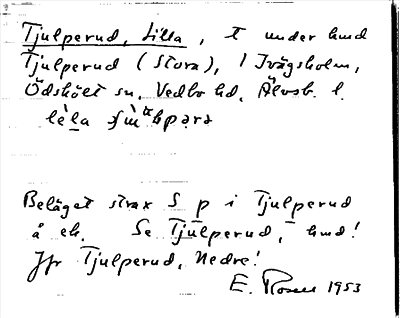 Tjulperud, Lilla, t under hmd
Tjulperud (Stora), 1 Ivägsholm,
Ödskölt sn. Vedbo hd. Älvsb. l.
Beläget strax S p i Tjulperud
å ek. Se Tjulperud, hmd!
Jfr Tjulperud, Nedre!
E. Rosén 1953